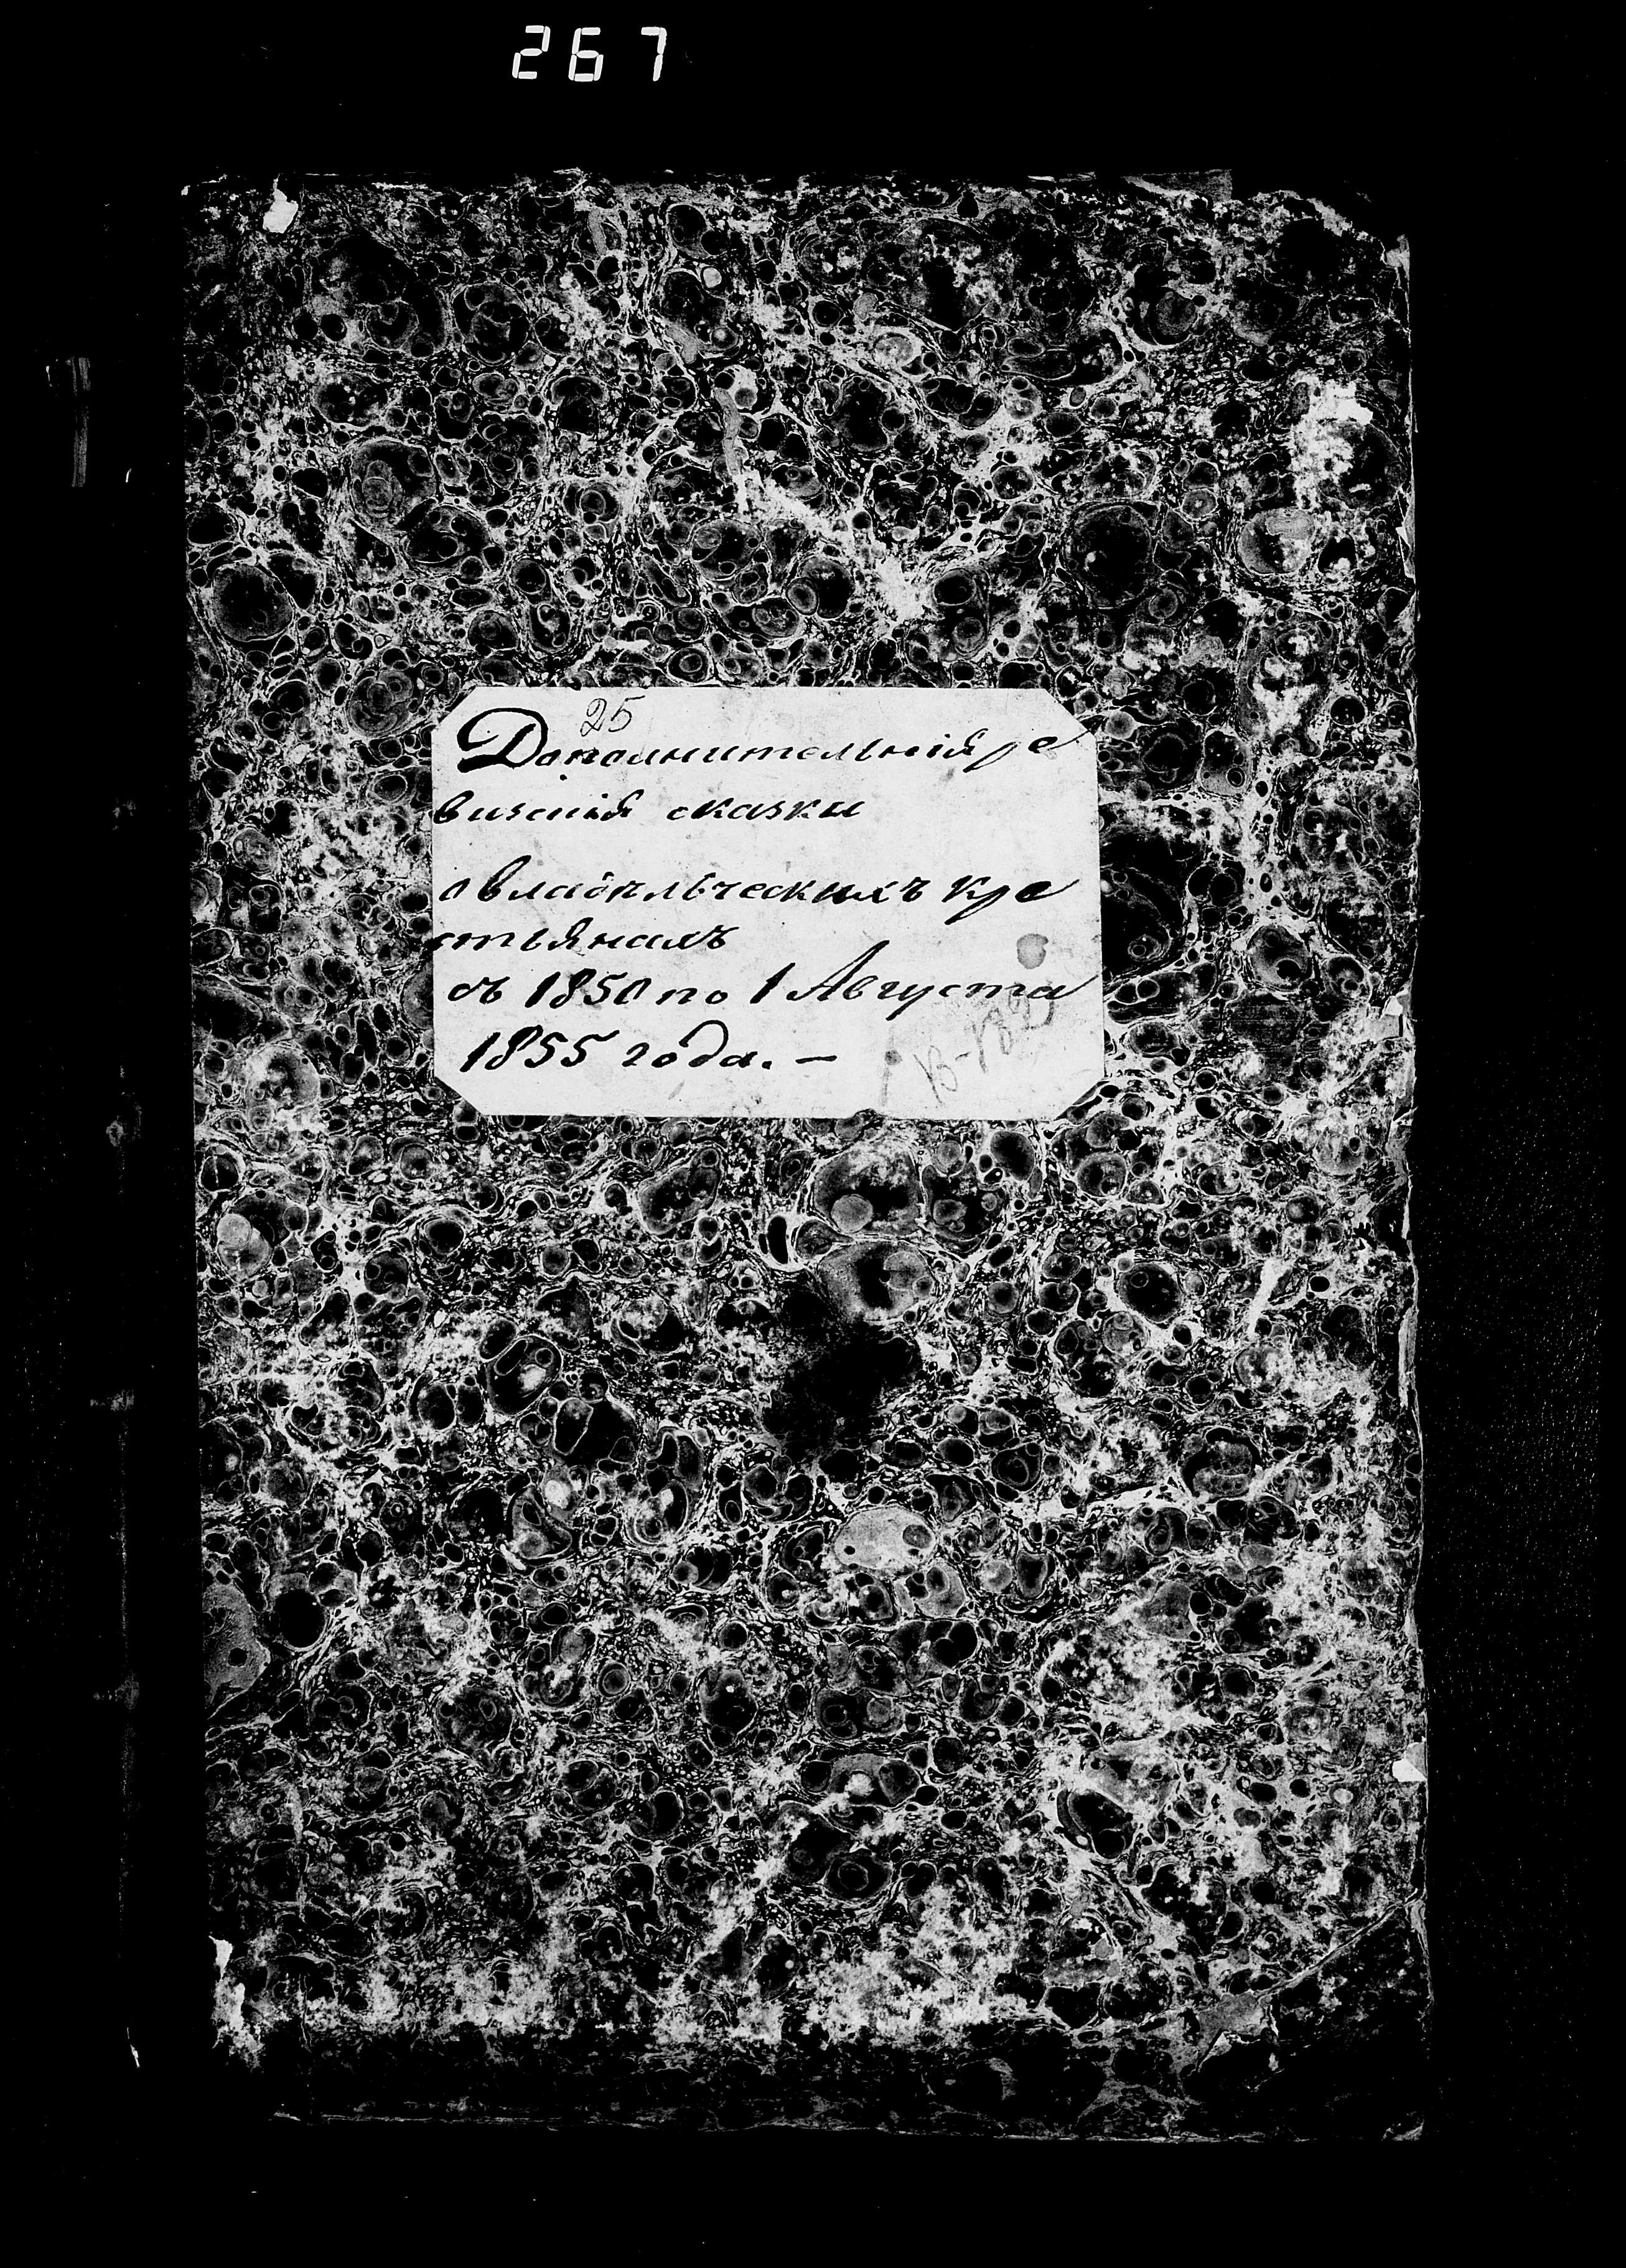 267
25
Дополнительнія ре
визскія сказки
о владѣльческихъ кре
стьянахъ
съ 1850 по 1 Августа
1855 года. —